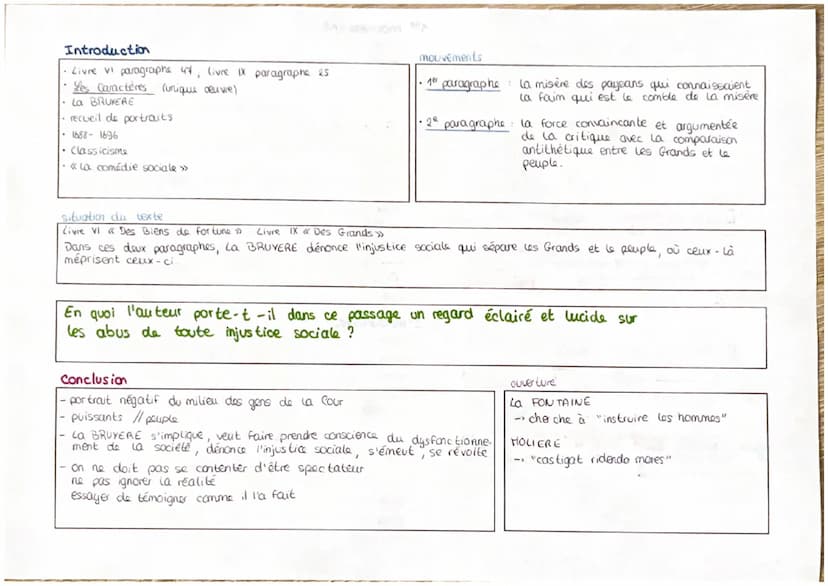 Introduction
· Livre VI paragraphe 47, Livre IX paragraphe 25
· Les Caractères (unique œuvre)
· La BRUYERE
· recueil de portraits
· 1688 - 1696
· Classicisme
· « La comédie sociale »
mouvements
· 1er paragraphe : la misère des paysans qui connaissaient
la faim qui est le comble de la misère
· 2e paragraphe : la force convaincante et argumentée
de la critique avec la comparaison
antithétique entre les Grands et le
peuple.
situation du texte
Livre VI « Des Biens de Fortune » Livre IX « Des Grands »
Dans ces deux paragraphes, La BRUYERE dénonce l'injustice sociale qui sépare les Grands et le peuple, où ceux-là
méprisent ceux-ci
En quoi l'auteur porte-t-il dans ce passage un regard éclairé et lucide sur
les abus de toute injustice sociale ?
Conclusion
- portrait négatif du milieu des gens de la Cour
- puissants // peuple
- La BRUYERE s'implique, veut faire prendre conscience du dysfonctionne-
ment de la société, dénonce l'injustice sociale, s'émeut, se révolte
- on ne doit pas se contenter d'être spectateur
ne pas ignorer la réalité
essayer de témoigner comme il l'a fait
ouverture
La FONTAINE
→ cherche à "instruire les hommes"
MOLIERE
→ "castigat ridendo mores"